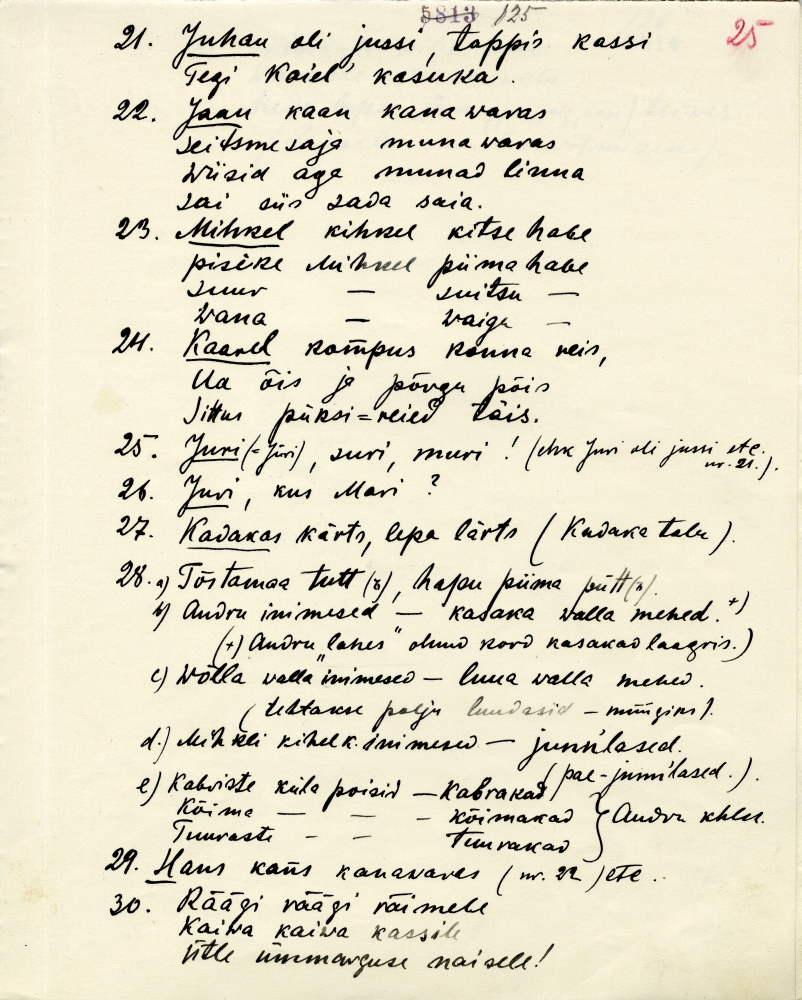 5813 125
25
21. Juhan oli jussi, tappis kassi
Tegi Kaiel' kasuka.
22. Jaan kaan kanawaras
seitsmesaja munawaras
Wiisid aga munad linna
sai siis sada saia.
23. Mihkel kihkel kitse habe
piseke Mihkel piimahabe
suur — suitsu —
wana — waigu —
24. Kaarel kom̄pus konna reis,
Ua õis ja põrgu põis
Sittus püksi=reied täis.
25. Juri (=Jüri), suri, muri! (ehk Juri oli jussi etc. nr. 21.).
26. Juri, kus Mari?
27. Kadakas kärts, lepa lärts (Kadaka talu).
28. a) Tõstamaa tutt(ø), hapu piima pütt(ø).
b) Audru inimesed — kasaka walla mehed. +)
(+) Audru lahes" olnud kord kasakad laagris.)
c) Wõlla walla "inimesed — luua walla mehed.
(tehtakse palju luudasid — müügiks).
d.) Mihkli kihelk. inimesed — junn'lased.
(pae-junn'lased.).
e) Kabriste küla poisid — Kabrakad
Kõima — — — kõimakad } Audru khlk.
Tuuraste - - tuurakad
29. Hans kan̄s kanawares (nr. 22) etc..
30. Räägi räägi räimele
Kaiwa kaiwa kassile
ütle ümmarguse naisele!